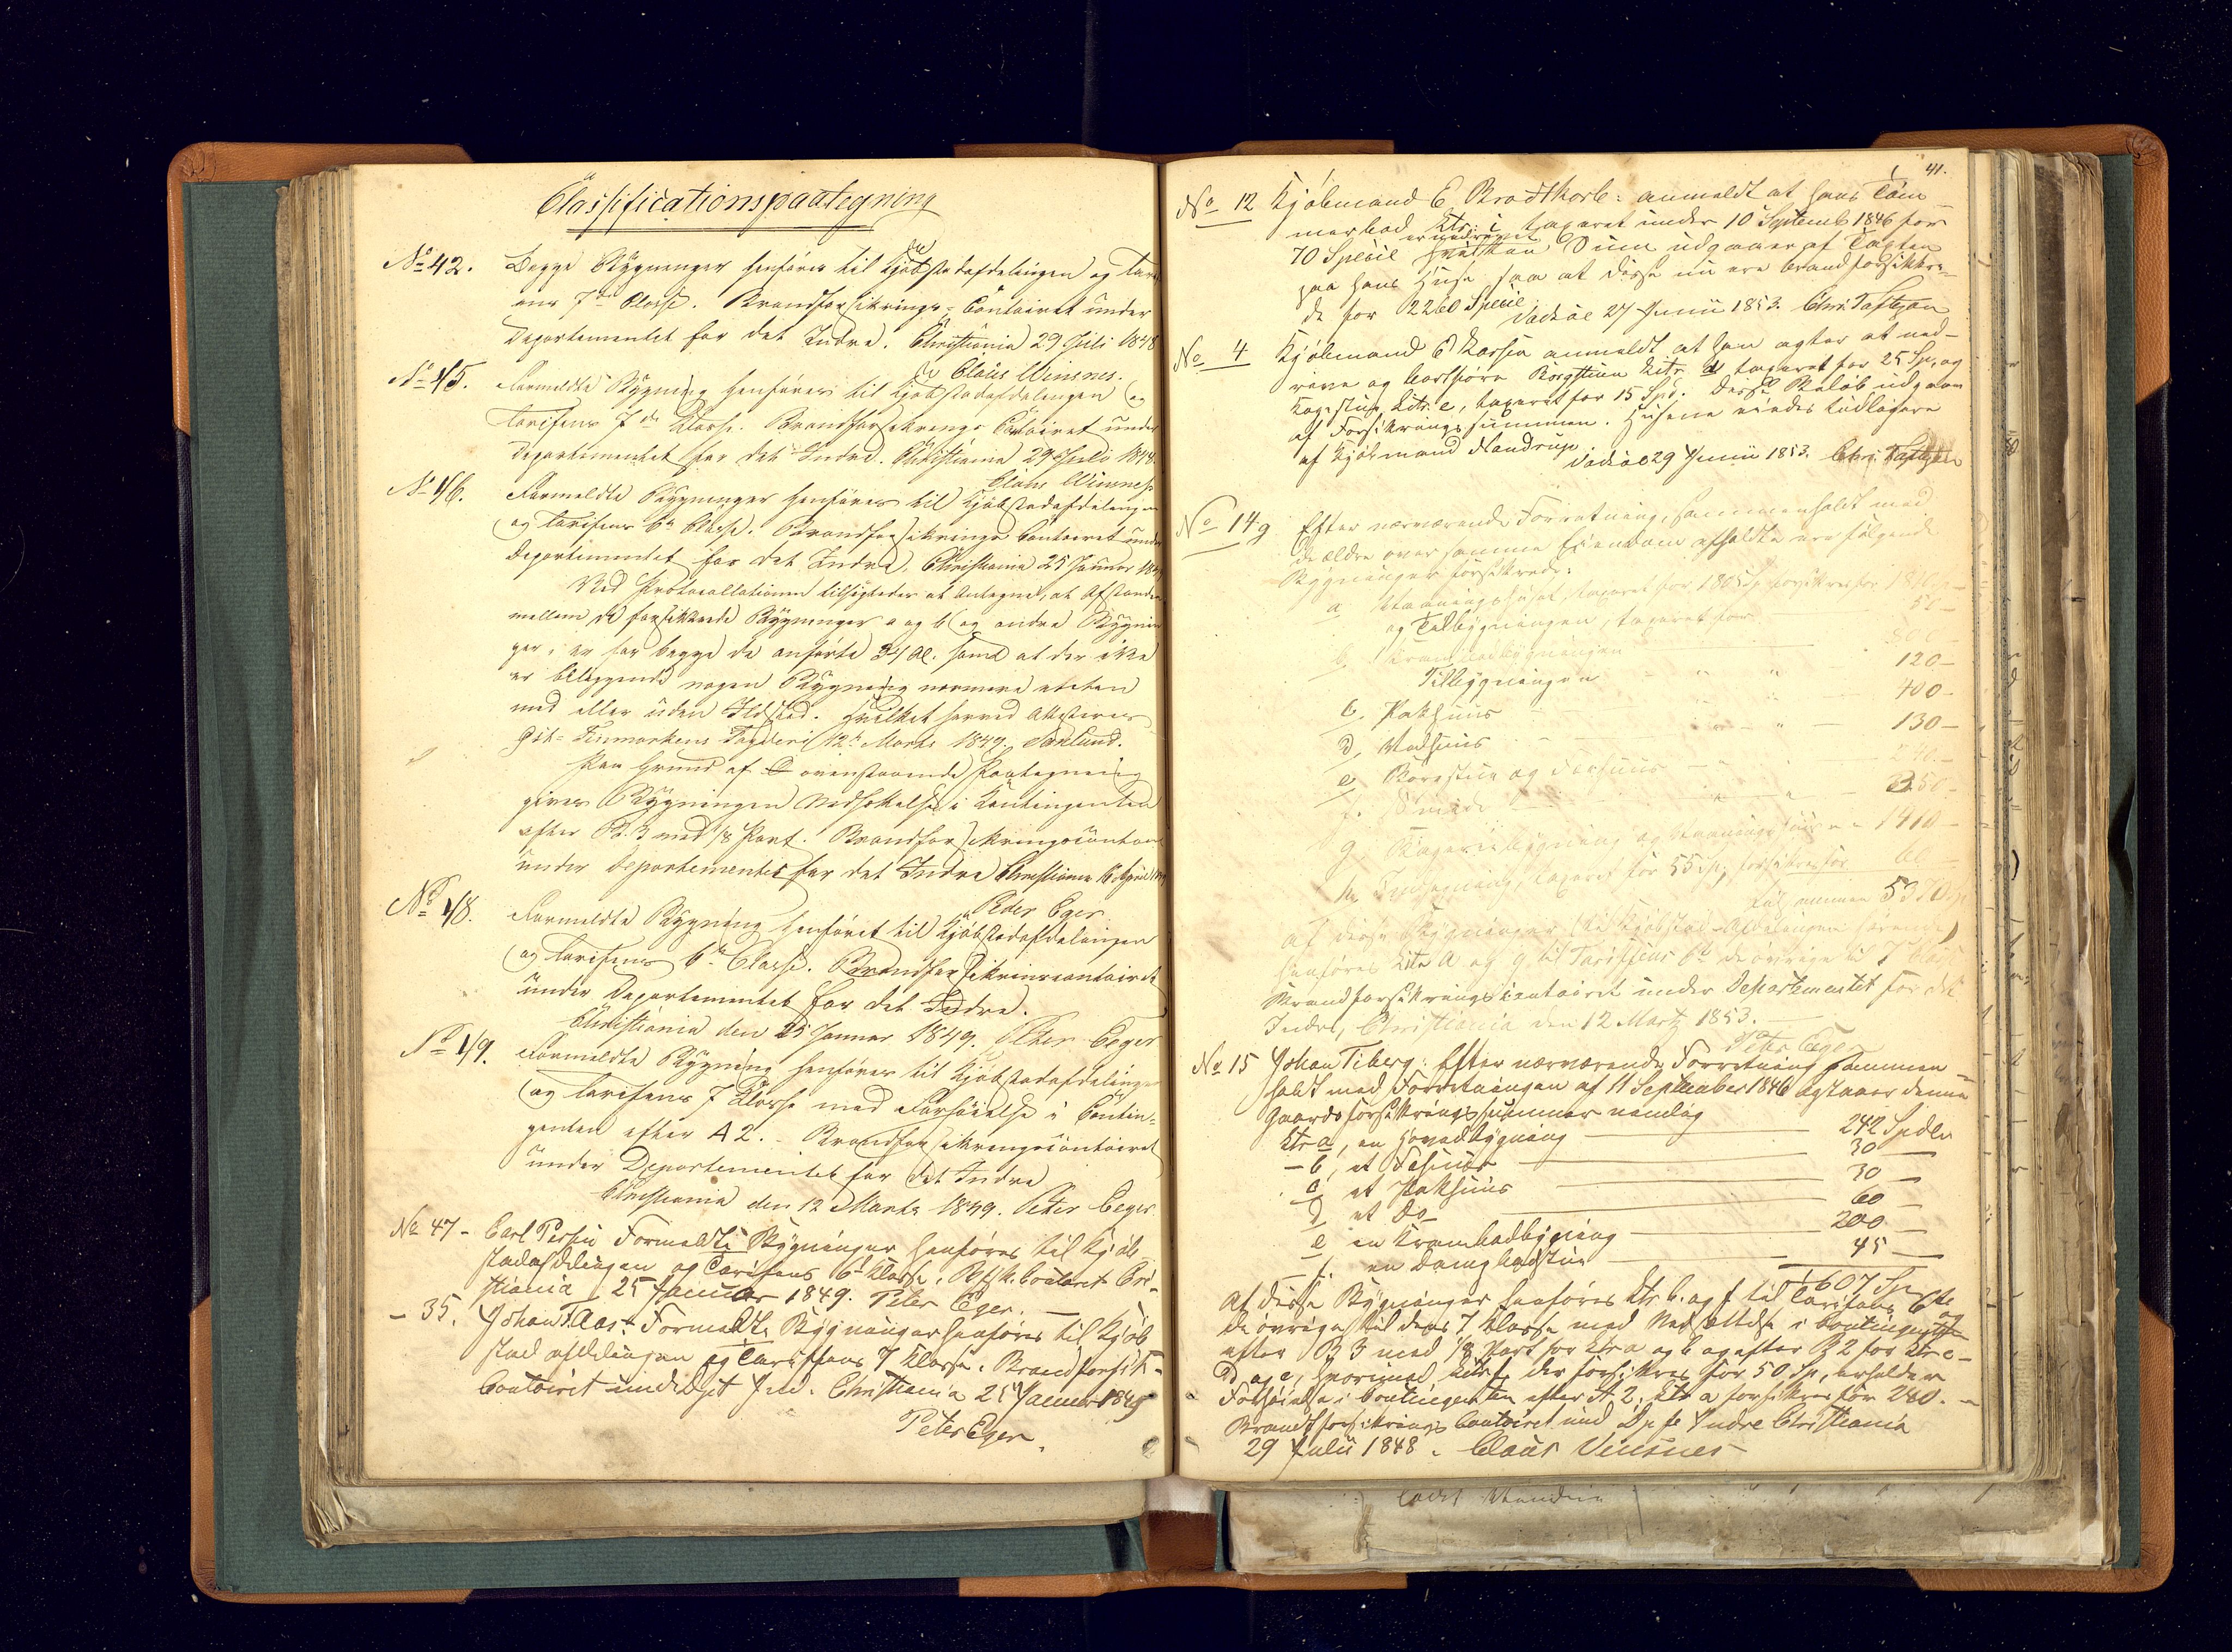 Classificationspaategning
No 42. Begge Bygninger henføres til Kjøbstadafdelingen og Tarif
ens 7de Classe. Brandforsikrings-Contoiret under
Departementet for det Indre. Christiania 29 Juli 1848
Claus Winsnes.
No 45. Formeldte Bygning henføres til Kjøbstadafdelingen og
Tarifens 7de Classe. Brandforsikrings Contoiret under
Departementet for det Indre. Christiania 29 Juli 1848.
Claus Winsnes
No 46. Formeldte Bygninger henføres til Kjøbstadafdelingen
og Tarifens 6te Classe. Brandforsikrings Contoiret under
Departementet for det Indre, Christiania 25 Januar 1849
Ved Protocollationen tilføiedes at Antegne, at Afstanden
mellem de forsikkrede Bygninger a og b og andre Bygnin
ger i er for begge de anførte 34 Al. samt at der ikke
er beliggende nogen Bygning nærmere enten
med eller uden Ildsted. Hvilket herved Attesteres
Øst-Finmarkens Fogderi 12te Marts 1849.
Paa Grund af ovenstaaende Paategning
gives Bygningen Nedsættelse i Contingenten
efter B.3 med 1/8 Part. Brandforsikringscontoiret
under Departementet for det Indre Christiania 16 April 1849
Peder Eger
No 48. Formeldte Bygning henføret til Kjøbstadafdelingen
og Tarifens 6te Classe. Brandforsikringscontoiret
under Departementet for det Indre.
Christiania den 25 Januar 1849. Peter Eeger
No 49. Formeldte Bygning henføres til Kjøbstadafdelingen
og Tarifens 7 Classe med Forhøielse i Contin-
genten efter A 2. - Brandforsikringscontoiret
under Departementet for det Indre
Christiania den 12 Marts 1849. Peter Eeger
No 47 - Carl Formeldte Bygninger henføres til Kjøb
stadafdelingen og Tarifens 6te Classe. Contoiret Chri-
stiania 25 Januar 1849. Peter Eger. —
- 35. Johan Aas: Formeldte Bygninger henføres til Kjøb
stad afdelingen og Tariffens 7 Classe. Brandforsik-
Contoiret Ind. Christiania 25 Januar 1849
Peter Eger.
41.
No 12 Kjøbmand E Brodtkorb: anmeldt at hans Tøm-
merbod Ltr. i taxeret under 10 Septemb 1846 for
70 Specie er nedrevet Sum udgaaer af Taxten
paa hans Huse saa at disse nu ere brandforsikkre-
de for 2260 Specie.
Vadsøe 27 Junii 1853. Chr. Taftezon
No 4 Kjøbmand E Esbensen anmeldt at han agter at ned-
rive og bortføre Borgstuen Litr. d, taxeret for 25 Sp, og
Kogestue, Litr. e, taxeret for 15 Spd. Disse Beløb udgaaer
af Forsikringssummen. Husene eiedes tidligere
af Kjøbmand Nandrup.
Vadsøe 29 Junii 1853. Chr. Taftezon
No 14.g Efter nærværende Forretning, sammenholdt med
de ældre over samme Eiendom afholdte ere følgende
Bygninger forsikrede:
a Vaaningshuset, taxeret for 1805 Sp forsikres for 1810 –
og Tilbygningen, taxeret for 50 –
b. Kramboebygningen 800 –
Tilbygningen 120 –
c. Pakhuus 400 –
d. Vedhuus 130 –
e Borgstue og Fæhuus 240. –
f. Smiede 50 –
g. Bageribygning og Vaaningshuus 1410 –
h. taxeret for 55 Sp, forsikres for 60 –
tilsammen 5370 Sp
Af disse Bygninger (til Kjøbstad-Afdelingen hørende)
henføres Litr. a og g til Tariffens 6te de øvrige til 7 Classe
Brandforsikringscontoiret under Departementet for det
Indre, Christiania den 12 Martz 1853. —
Peter Eeger
No 15 Johan Tiberg: Efter nærværende Forretning sammen-
holdt med Forretningen af 11 September 1846 udgjøer denne
Gaards forsikringssummer nemlig
Ltr a, en Hovedbygning — 242 Spdlr
- b, et Fæhuus — 30 —
c, et Pakhuus — 30 —
d, et Do — 60
e en Krambodbygning — 200 —
f. en Dampbadstue — 45 —
607 Sp
Af disse Bygninger henføres Ltr. b. og f til Tarifens 6te
de øvrige til dens 7 Classe med Nedsættelse i Contingenten
efter B 3 med 1/8 Part for Ltr a og b og efter B 2 for Ltr c -
d og e, hvorimod Litr. f, der forsikres for 50 Sp, erholder
Forhøielse i Contingenten efter A 2. Ltr a forsikres for 240. –
Brandforsikrings Contoiret und Indre Christiania
29 Julii 1848. Claus Vinsnes